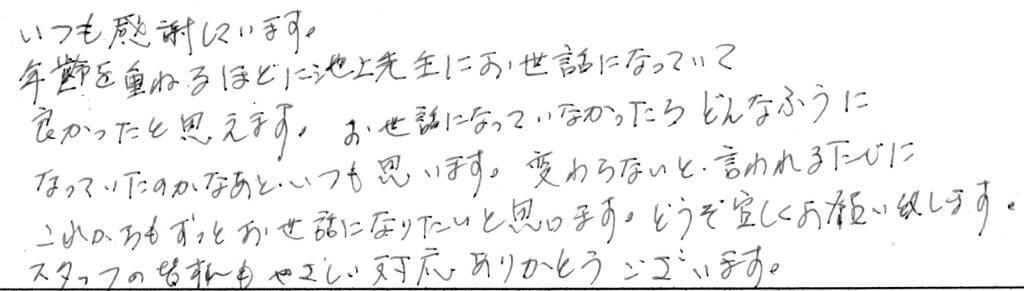 いつも感謝しています。
年齢を重ねるほどに池上先生にお世話になっていて
良かったと思えます。お世話になっていなかったらどんなふうに
なっていたのかなあと、いつも思います。変わらないと、言われるたびに
これからもずっとお世話になりたいと思います。どうぞ宜しくお願い致します。
スタッフの皆さんもやさしい対応ありがとうございます。